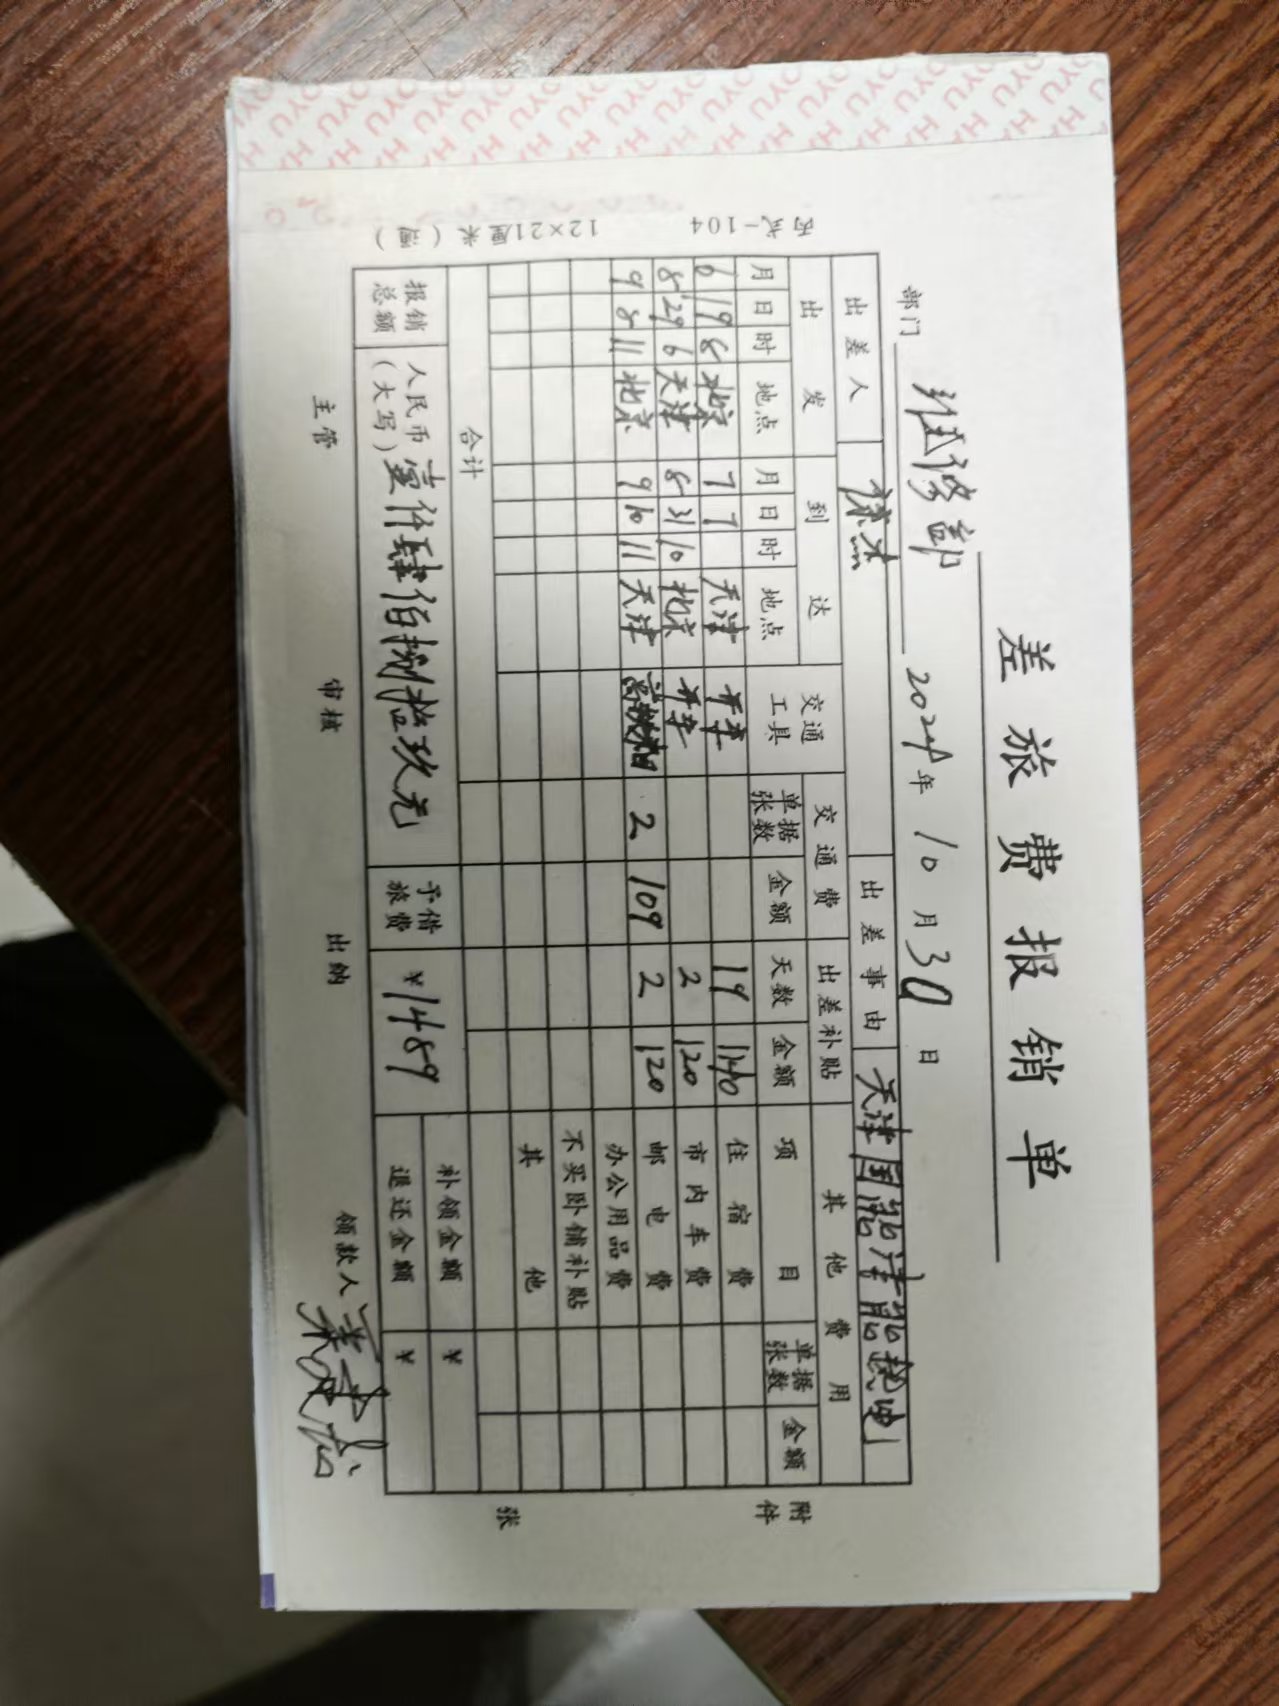 差旅费报销单
部门 维修部 2024年10月30日
出差人 出差事由 天津国能津能热电
出发 到达 交通工具 交通费 出差补贴 其他费用
月 日 时 地点 月 日 时 地点 单据张数 金额 天数 金额 项目 单据张数 金额
6 19 8 北京 7 7 天津 开车 19 1140 住宿费
8 29 6 天津 8 31 10 北京 开车 2 120 市内车费
9 8 11 北京 9 10 11 天津 2 109 2 120 邮电费
办公用品费
不买卧铺补贴
其他
合计
报销总额 人民币(大写) 壹仟肆佰捌拾玖元 予借旅费 ¥1489 补领金额 ¥
退还金额 ¥
主管 审核 出纳 领款人
附件 张
丙式-104 12×21厘米
HAOYU